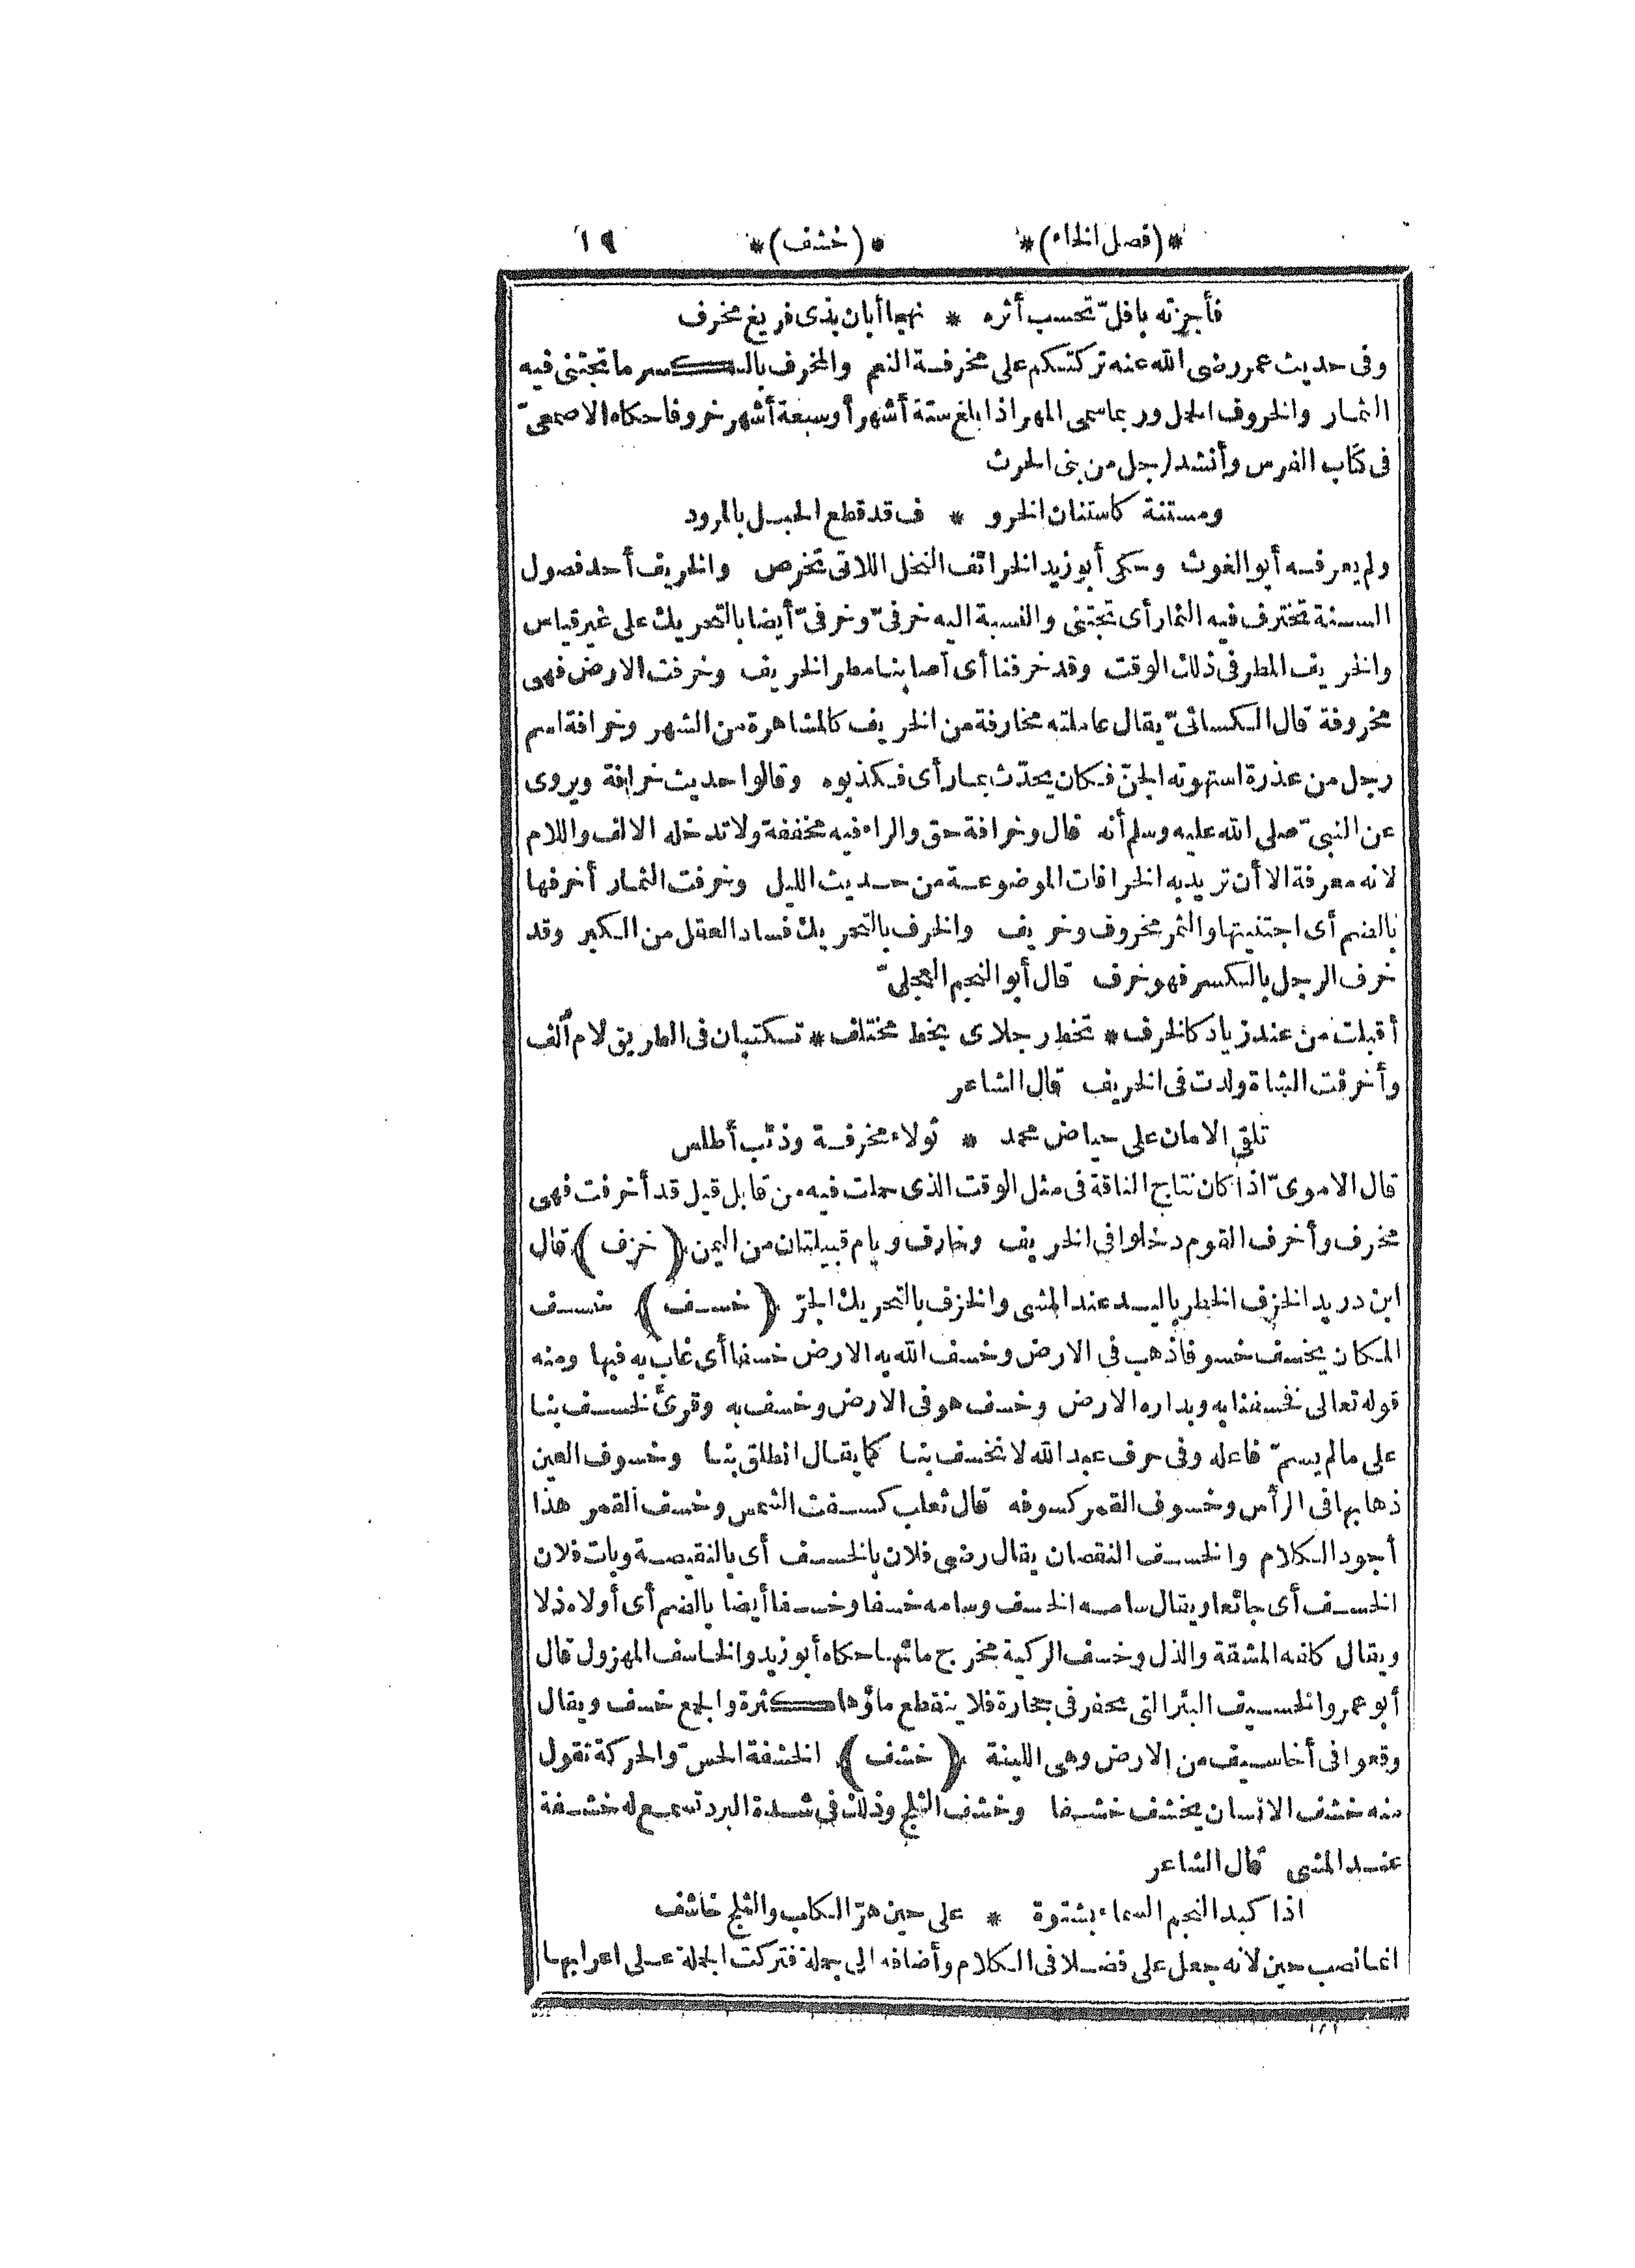 *(فصل الخاء)* *(خشف)* ١٩
فأجزته بافلّ تحسب أثره * نهجا أبان بذى فريغ مخرف
وفى حديث عمر رضى الله عنه تركتكم على مخرفة النعم والمخرف بالكسر ما تجتنى فيه
الثمار والخروف الحمل وربما سمى المهر اذا بلغ ستة أشهر أو سبعة أشهر خروفا حكاه الاصمعىّ
فى كتاب الفرس وأنشد لرجل من بنى الحرث
ومستنة كاستنان الخرو * ف قد قطع الحبل بالمرود
ولم يعرفه أبو الغوث وحكى أبو زيد الخرائف النخل اللاتى تخرص والخريف أحد فصول
السنة تخترف فيه الثمار أى تجتنى والنسبة اليه خرفىّ وخرفىّ أيضا بالتحريك على غير قياس
والخريف المطر فى ذلك الوقت وقد خرفنا أى أصابنا مطر الخريف وخرفت الارض فهى
مخروفة قال الكسائىّ يقال عاملته مخارفة من الخريف كالمشاهرة من الشهر وخرافة اسم
رجل من عذرة استهوته الجنّ فكان يحدّث بما رأى فكذبوه وقالوا حديث خرافة ويروى
عن النبىّ صلى الله عليه وسلم أنه قال وخرافة حق والراء فيه مخففة ولا تدخله الالف واللام
لانه معرفة الا أن تريد به الخرافات الموضوعة من حديث الليل وخرفت الثمار أخرفها
بالضم أى اجتنيتها والثمر مخروف وخريف والخرف بالتحريك فساد العقل من الكبر وقد
خرف الرجل بالكسر فهو خرف قال أبو النجم العجلىّ
أقبلت من عند زياد كالخرف * تخط رجلاى بخط مختلف * تكتبان فى الطريق لام ألف
وأخرفت الشاة ولدت فى الخريف قال الشاعر
تلقى الامان على حياض محمد * ثولاء مخرفة وذئب أطلس
قال الاموىّ اذا كان نتاج الناقة فى مثل الوقت الذى حملت فيه من قابل قيل قد أخرفت فهى
مخرف وأخرف القوم دخلوا فى الخريف وخارف ويام قبيلتان من اليمن ﴿خزف﴾ قال
ابن دريد الخزف الخطر باليد عند المشى والخزف بالتحريك الجرّ ﴿خسف﴾ خسف
المكان يخسف خسوفا ذهب فى الارض وخسف الله به الارض خسفا أى غاب به فيها ومنه
قوله تعالى فخسفنا به وبداره الارض وخسف هو فى الارض وخسف به وقرئ لخسف بنا
على ما لم يسمّ فاعله وفى حرف عبد الله لانخسف بنا كما يقال انطلق بنا وخسوف العين
ذهابها فى الرأس وخسوف القمر كسوفه قال ثعلب كسفت الشمس وخسف القمر هذا
أجود الكلام والخسف النقصان يقال رضى فلان بالخسف أى بالنقيصة وبات فلان
الخسف أى جائعا ويقال سامه الخسف وسامه خسفا وخسفا أيضا بالضم أى أولاه ذلا
ويقال كلفه المشقة والذل وخسف الركية مخرج مائها حكاه أبو زيد والخاسف المهزول قال
أبو عمرو الخسيف البئر التى تحفر فى حجارة فلا ينقطع ماؤها كثرة والجمع خسف ويقال
وقعوا فى أخاسيف من الارض وهى اللينة ﴿خشف﴾ الخشفة الحسّ والحركة تقول
منه خشف الانسان يخشف خشفا وخشف الثلج وذلك فى شدة البرد تسمع له خشفة
عند المشى قال الشاعر
اذا كبد النجم السماء بشتوة * على حين هرّ الكلب والثلج خاشف
انما نصب حين لانه جعل على فضلا فى الكلام وأضافه الى جملة فتركت الجملة على اعرابها